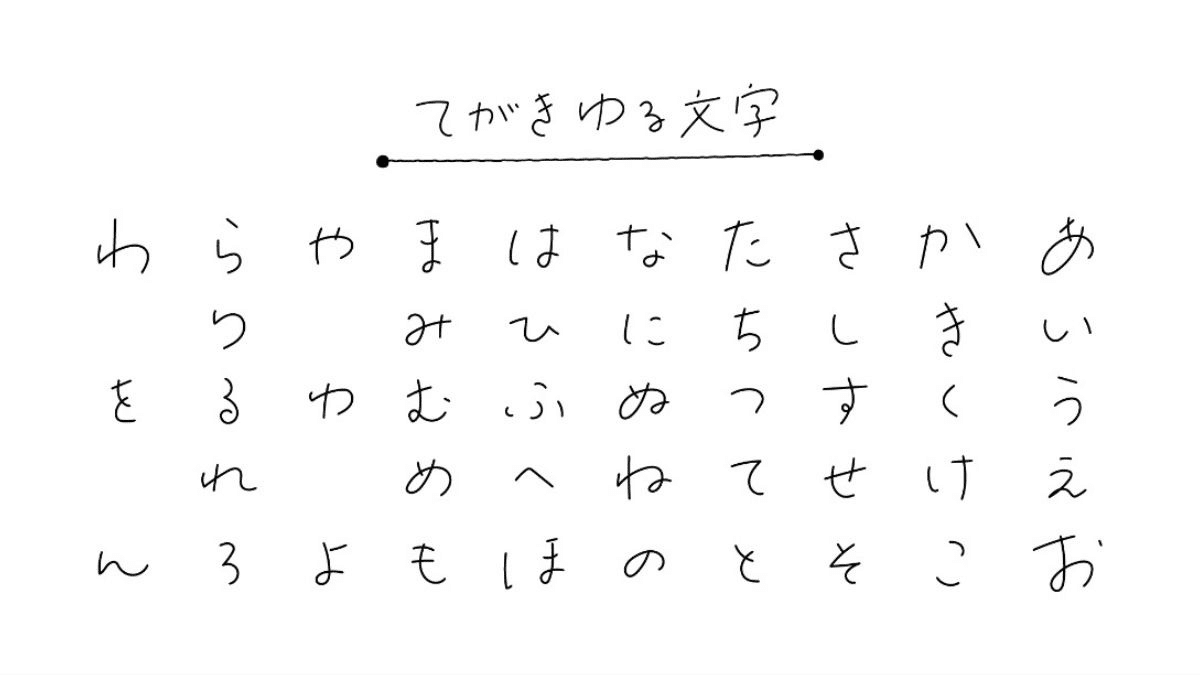 てがきゆる文字
あいうえお
かきくけこ
さしすせそ
たちつてと
なにぬねの
はひふへほ
まみむめも
やゆよ
らりるれろ
わをん